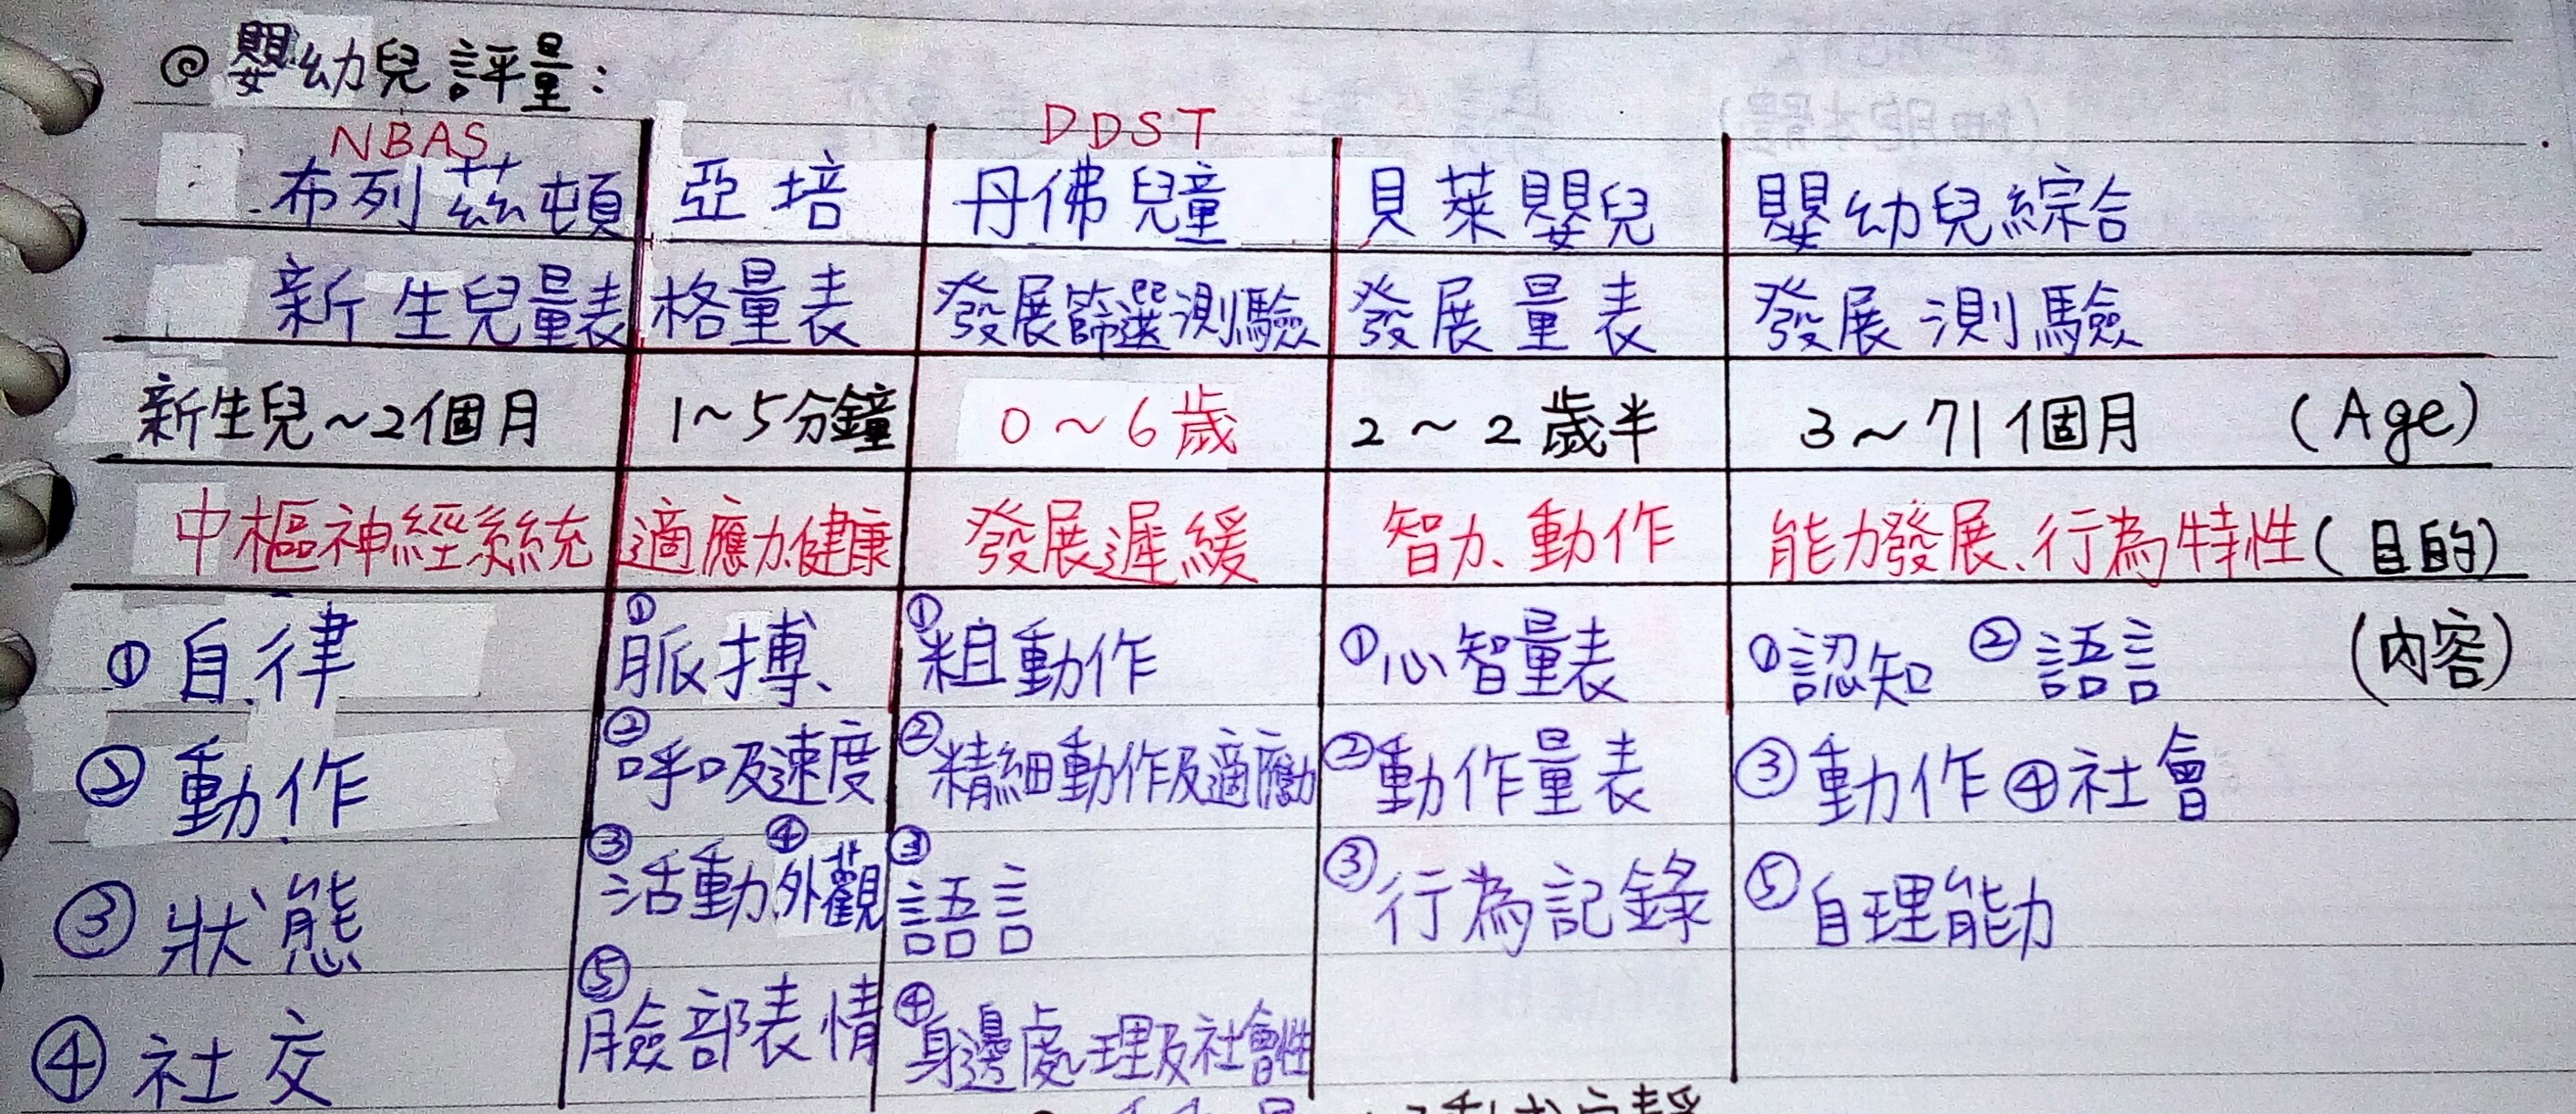 ◎嬰幼兒評量：
NBAS DDST
布列茲頓 亞培 丹佛兒童 貝萊嬰兒 嬰幼兒綜合
新生兒量表 格量表 發展篩選測驗 發展量表 發展測驗
新生兒~2個月 1~5分鐘 0~6歲 2~2歲半 3~71個月 (Age)
中樞神經系統 適應力、健康 發展遲緩 智力、動作 能力發展、行為特性 (目的)
①自律 ①脈搏、 ①粗動作 ①心智量表 ①認知 ②語言 (內容)
②動作 ②呼吸速度 ②精細動作及適應力 ②動作量表 ③動作 ④社會
③狀態 ③活動、④外觀 ③語言 ③行為記錄 ⑤自理能力
④社交 ⑤臉部表情 ④身邊處理及社會性